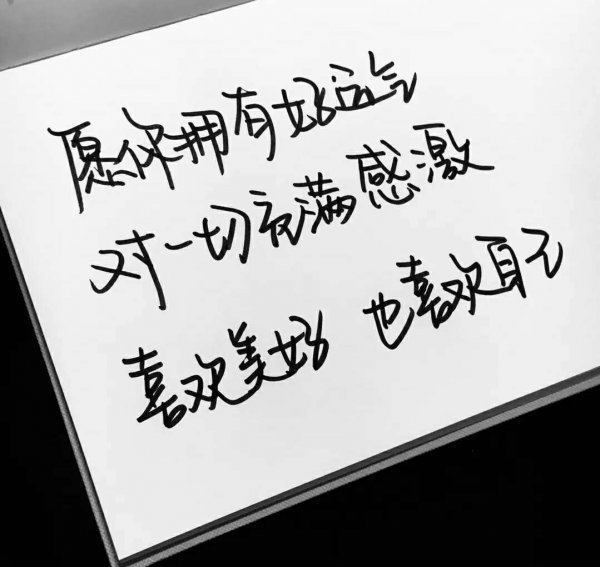 愿你拥有好运气
对一切充满感激
喜欢美好 也喜欢自己